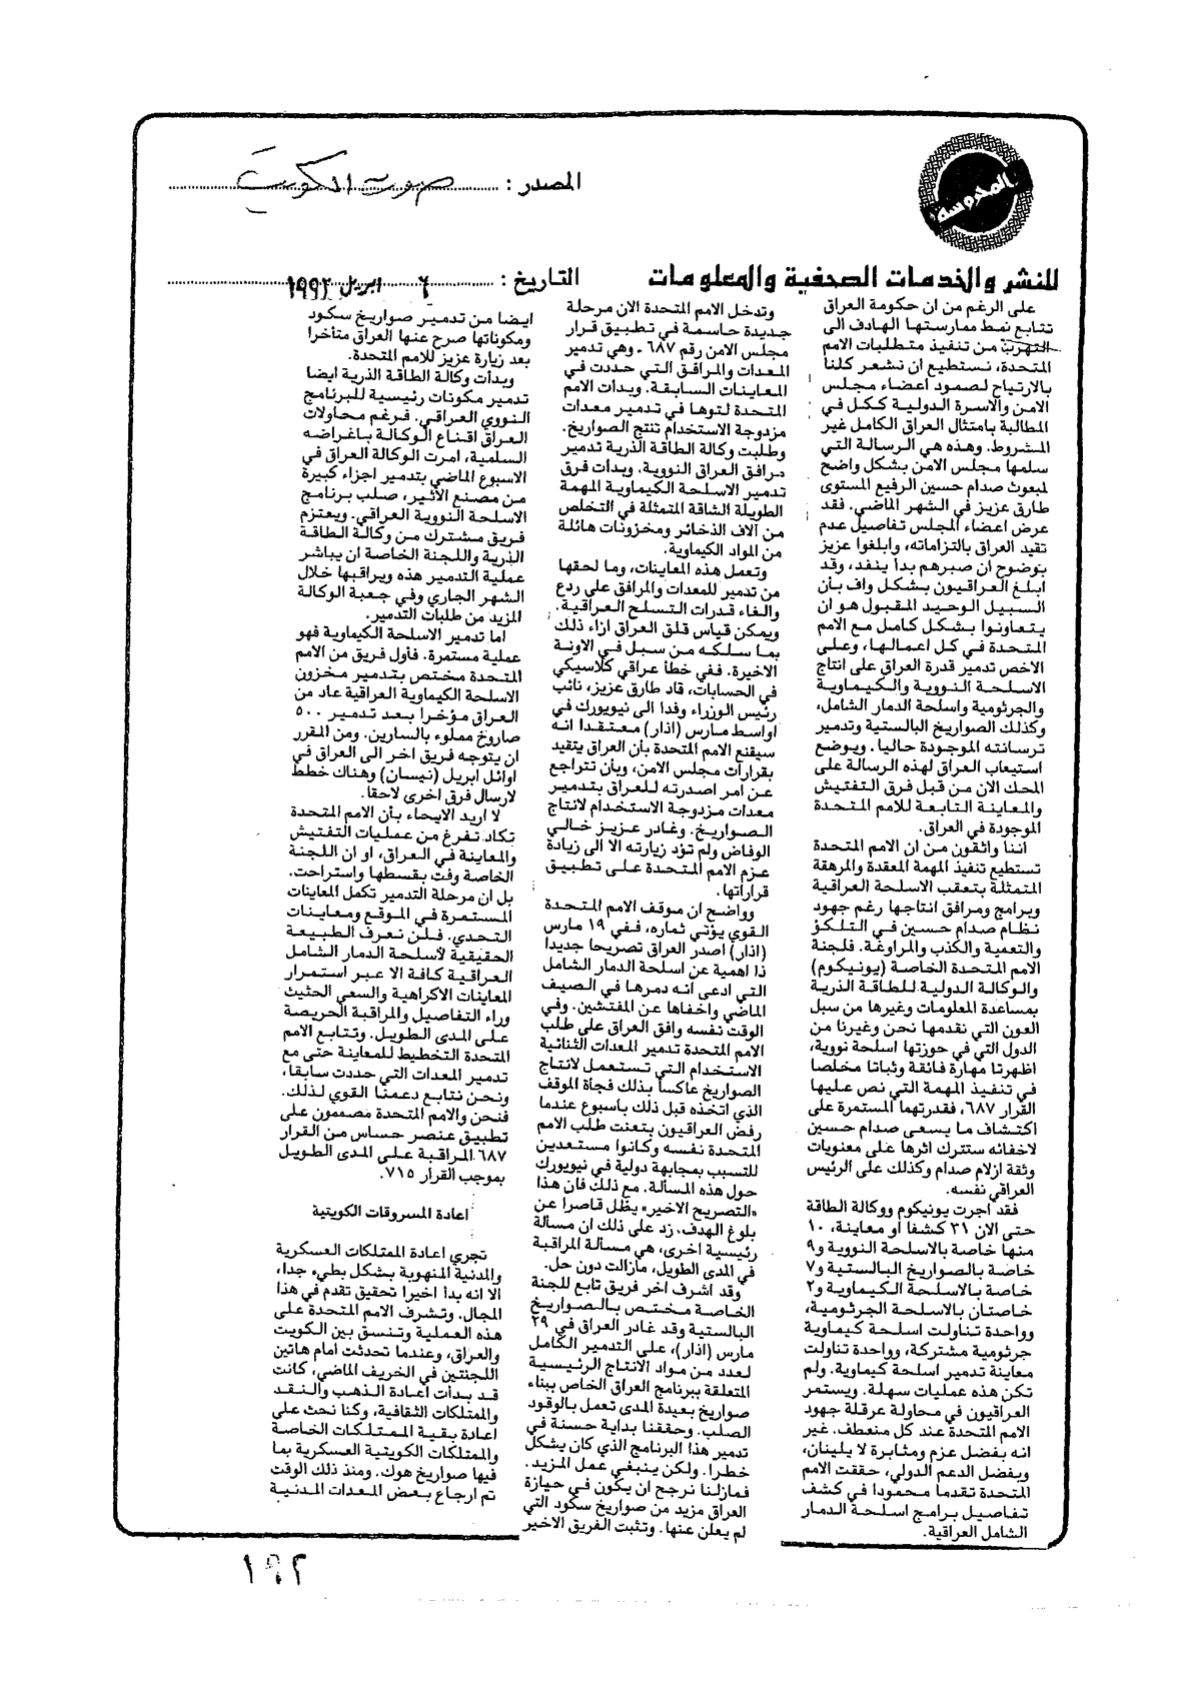 المحروسة
المصدر : صوت الكويت
للنشر والخدمات الصحفية والمعلومات
التاريخ : ٦ ابريل ١٩٩٢
على الرغم من ان حكومة العراق
تتابع نمط ممارستها الهادف الى
التهرب من تنفيذ متطلبات الامم
المتحدة، نستطيع ان نشعر كلنا
بالارتياح لصمود اعضاء مجلس
الامن والاسرة الدولية ككل في
المطالبة بامتثال العراق الكامل غير
المشروط. وهذه هي الرسالة التي
سلمها مجلس الامن بشكل واضح
لمبعوث صدام حسين الرفيع المستوى
طارق عزيز في الشهر الماضي. فقد
عرض اعضاء المجلس تفاصيل عدم
تقيد العراق بالتزاماته، وابلغوا عزيز
بوضوح ان صبرهم بدأ ينفد، وقد
ابلغ العراقيون بشكل واف بأن
السبيل الوحيد المقبول هو ان
يتعاونوا بشكل كامل مع الامم
المتحدة في كل اعمالها، وعلى
الاخص تدمير قدرة العراق على انتاج
الاسلحة النووية والكيماوية
والجرثومية واسلحة الدمار الشامل،
وكذلك الصواريخ البالستية وتدمير
ترسانته الموجودة حاليا. ويوضع
استيعاب العراق لهذه الرسالة على
المحك الان من قبل فرق التفتيش
والمعاينة التابعة للامم المتحدة
الموجودة في العراق.
اننا واثقون من ان الامم المتحدة
تستطيع تنفيذ المهمة المعقدة والمرهقة
المتمثلة بتعقب الاسلحة العراقية
وبرامج ومرافق انتاجها رغم جهود
نظام صدام حسين في التلكؤ
والتعمية والكذب والمراوغة. فلجنة
الامم المتحدة الخاصة (يونيكوم)
والوكالة الدولية للطاقة الذرية
بمساعدة المعلومات وغيرها من سبل
العون التي نقدمها نحن وغيرنا من
الدول التي في حوزتها اسلحة نووية،
اظهرتا مهارة فائقة وثباتا مخلصا
في تنفيذ المهمة التي نص عليها
القرار ٦٨٧، فقدرتهما المستمرة على
اكتشاف ما يسعى صدام حسين
لاخفائه ستترك اثرها على معنويات
وثقة ازلام صدام وكذلك على الرئيس
العراقي نفسه.
فقد أجرت يونيكوم ووكالة الطاقة
حتى الان ٣١ كشفا او معاينة، ١٠
منها خاصة بالاسلحة النووية و٩
خاصة بالصواريخ البالستية و٧
خاصة بالاسلحة الكيماوية و٢
خاصتان بالاسلحة الجرثومية،
وواحدة تناولت اسلحة كيماوية
جرثومية مشتركة، وواحدة تناولت
معاينة تدمير اسلحة كيماوية. ولم
تكن هذه عمليات سهلة. ويستمر
العراقيون في محاولة عرقلة جهود
الامم المتحدة عند كل منعطف. غير
انه بفضل عزم ومثابرة لا يلينان،
وبفضل الدعم الدولي، حققت الامم
المتحدة تقدما محمودا في كشف
تفاصيل برامج اسلحة الدمار
الشامل العراقية.
وتدخل الامم المتحدة الان مرحلة
جديدة حاسمة في تطبيق قرار
مجلس الامن رقم ٦٨٧ - وهي تدمير
المعدات والمرافق التي حددت في
المعاينات السابقة. وبدأت الامم
المتحدة لتوها في تدمير معدات
مزدوجة الاستخدام تنتج الصواريخ.
وطلبت وكالة الطاقة الذرية تدمير
مرافق العراق النووية. وبدأت فرق
تدمير الاسلحة الكيماوية المهمة
الطويلة الشاقة المتمثلة في التخلص
من آلاف الذخائر ومخزونات هائلة
من المواد الكيماوية.
وتعمل هذه المعاينات، وما لحقها
من تدمير للمعدات والمرافق على ردع
والغاء قدرات التسلح العراقية.
ويمكن قياس قلق العراق ازاء ذلك
بما سلكه من سبل في الاونة
الاخيرة. ففي خطأ عراقي كلاسيكي
في الحسابات، قاد طارق عزيز، نائب
رئيس الوزراء وفدا الى نيويورك في
اواسط مارس (اذار) معتقدا انه
سيقنع الامم المتحدة بأن العراق يتقيد
بقرارات مجلس الامن، وبأن تتراجع
عن امر اصدرته للعراق بتدمير
معدات مزدوجة الاستخدام لانتاج
الصواريخ. وغادر عزيز خالي
الوفاض ولم تؤد زيارته الا الى زيادة
عزم الامم المتحدة على تطبيق
قراراتها.
وواضح ان موقف الامم المتحدة
القوي يؤتي ثماره، ففي ١٩ مارس
(اذار) اصدر العراق تصريحا جديدا
ذا اهمية عن اسلحة الدمار الشامل
التي ادعى انه دمرها في الصيف
الماضي واخفاها عن المفتشين. وفي
الوقت نفسه وافق العراق على طلب
الامم المتحدة تدمير المعدات الثنائية
الاستخدام التي تستعمل لانتاج
الصواريخ عاكسا بذلك فجأة الموقف
الذي اتخذه قبل ذلك باسبوع عندما
رفض العراقيون بتعنت طلب الامم
المتحدة نفسه وكانوا مستعدين
للتسبب بمجابهة دولية في نيويورك
حول هذه المسألة. مع ذلك فان هذا
«التصريح الاخير» يظل قاصرا عن
بلوغ الهدف. زد على ذلك ان مسألة
رئيسية اخرى، هي مسألة المراقبة
في المدى الطويل، مازالت دون حل.
وقد اشرف اخر فريق تابع للجنة
الخاصة مختص بالصواريخ
البالستية وقد غادر العراق في ٢٩
مارس (اذار)، على التدمير الكامل
لعدد من مواد الانتاج الرئيسية
المتعلقة ببرنامج العراق الخاص ببناء
صواريخ بعيدة المدى تعمل بالوقود
الصلب. وحققنا بداية حسنة في
تدمير هذا البرنامج الذي كان يشكل
خطرا. ولكن ينبغي عمل المزيد.
فمازلنا نرجح ان يكون في حيازة
العراق مزيد من صواريخ سكود التي
لم يعلن عنها. وتثبت الفريق الاخير
ايضا من تدمير صواريخ سكود
ومكوناتها صرح عنها العراق متأخرا
بعد زيارة عزيز للامم المتحدة.
وبدأت وكالة الطاقة الذرية ايضا
تدمير مكونات رئيسية للبرنامج
النووي العراقي. فرغم محاولات
العراق اقناع الوكالة باغراضه
السلمية، امرت الوكالة العراق في
الاسبوع الماضي بتدمير اجزاء كبيرة
من مصنع الأثير، صلب برنامج
الاسلحة النووية العراقي. ويعتزم
فريق مشترك من وكالة الطاقة
الذرية واللجنة الخاصة ان يباشر
عملية التدمير هذه ويراقبها خلال
الشهر الجاري وفي جعبة الوكالة
المزيد من طلبات التدمير.
اما تدمير الاسلحة الكيماوية فهو
عملية مستمرة. فأول فريق من الامم
المتحدة مختص بتدمير مخزون
الاسلحة الكيماوية العراقية عاد من
العراق مؤخرا بعد تدمير ٥٠٠
صاروخ مملوء بالسارين. ومن المقرر
ان يتوجه فريق اخر الى العراق في
اوائل ابريل (نيسان) وهناك خطط
لارسال فرق اخرى لاحقا.
لا اريد الايحاء بأن الامم المتحدة
تكاد تفرغ من عمليات التفتيش
والمعاينة في العراق، او ان اللجنة
الخاصة وفت بقسطها واستراحت.
بل ان مرحلة التدمير تكمل المعاينات
المستمرة في الموقع ومعاينات
التحدي. فلن نعرف الطبيعة
الحقيقية لأسلحة الدمار الشامل
العراقية كافة الا عبر استمرار
المعاينات الاكراهية والسعي الحثيث
وراء التفاصيل والمراقبة الحريصة
على المدى الطويل. وتتابع الامم
المتحدة التخطيط للمعاينة حتى مع
تدمير المعدات التي حددت سابقا،
ونحن نتابع دعمنا القوي لذلك.
فنحن والامم المتحدة مصممون على
تطبيق عنصر حساس من القرار
٦٨٧ المراقبة على المدى الطويل
بموجب القرار ٧١٥.
اعادة المسروقات الكويتية
تجري اعادة الممتلكات العسكرية
والمدنية المنهوبة بشكل بطيء جدا،
الا انه بدأ اخيرا تحقيق تقدم في هذا
المجال. وتشرف الامم المتحدة على
هذه العملية وتنسق بين الكويت
والعراق، وعندما تحدثت امام هاتين
اللجنتين في الخريف الماضي، كانت
قد بدأت اعادة الذهب والنقد
والممتلكات الثقافية، وكنا نحث على
اعادة بقية الممتلكات الخاصة
والممتلكات الكويتية العسكرية بما
فيها صواريخ هوك. ومنذ ذلك الوقت
تم ارجاع بعض المعدات المدنية
١٩٢